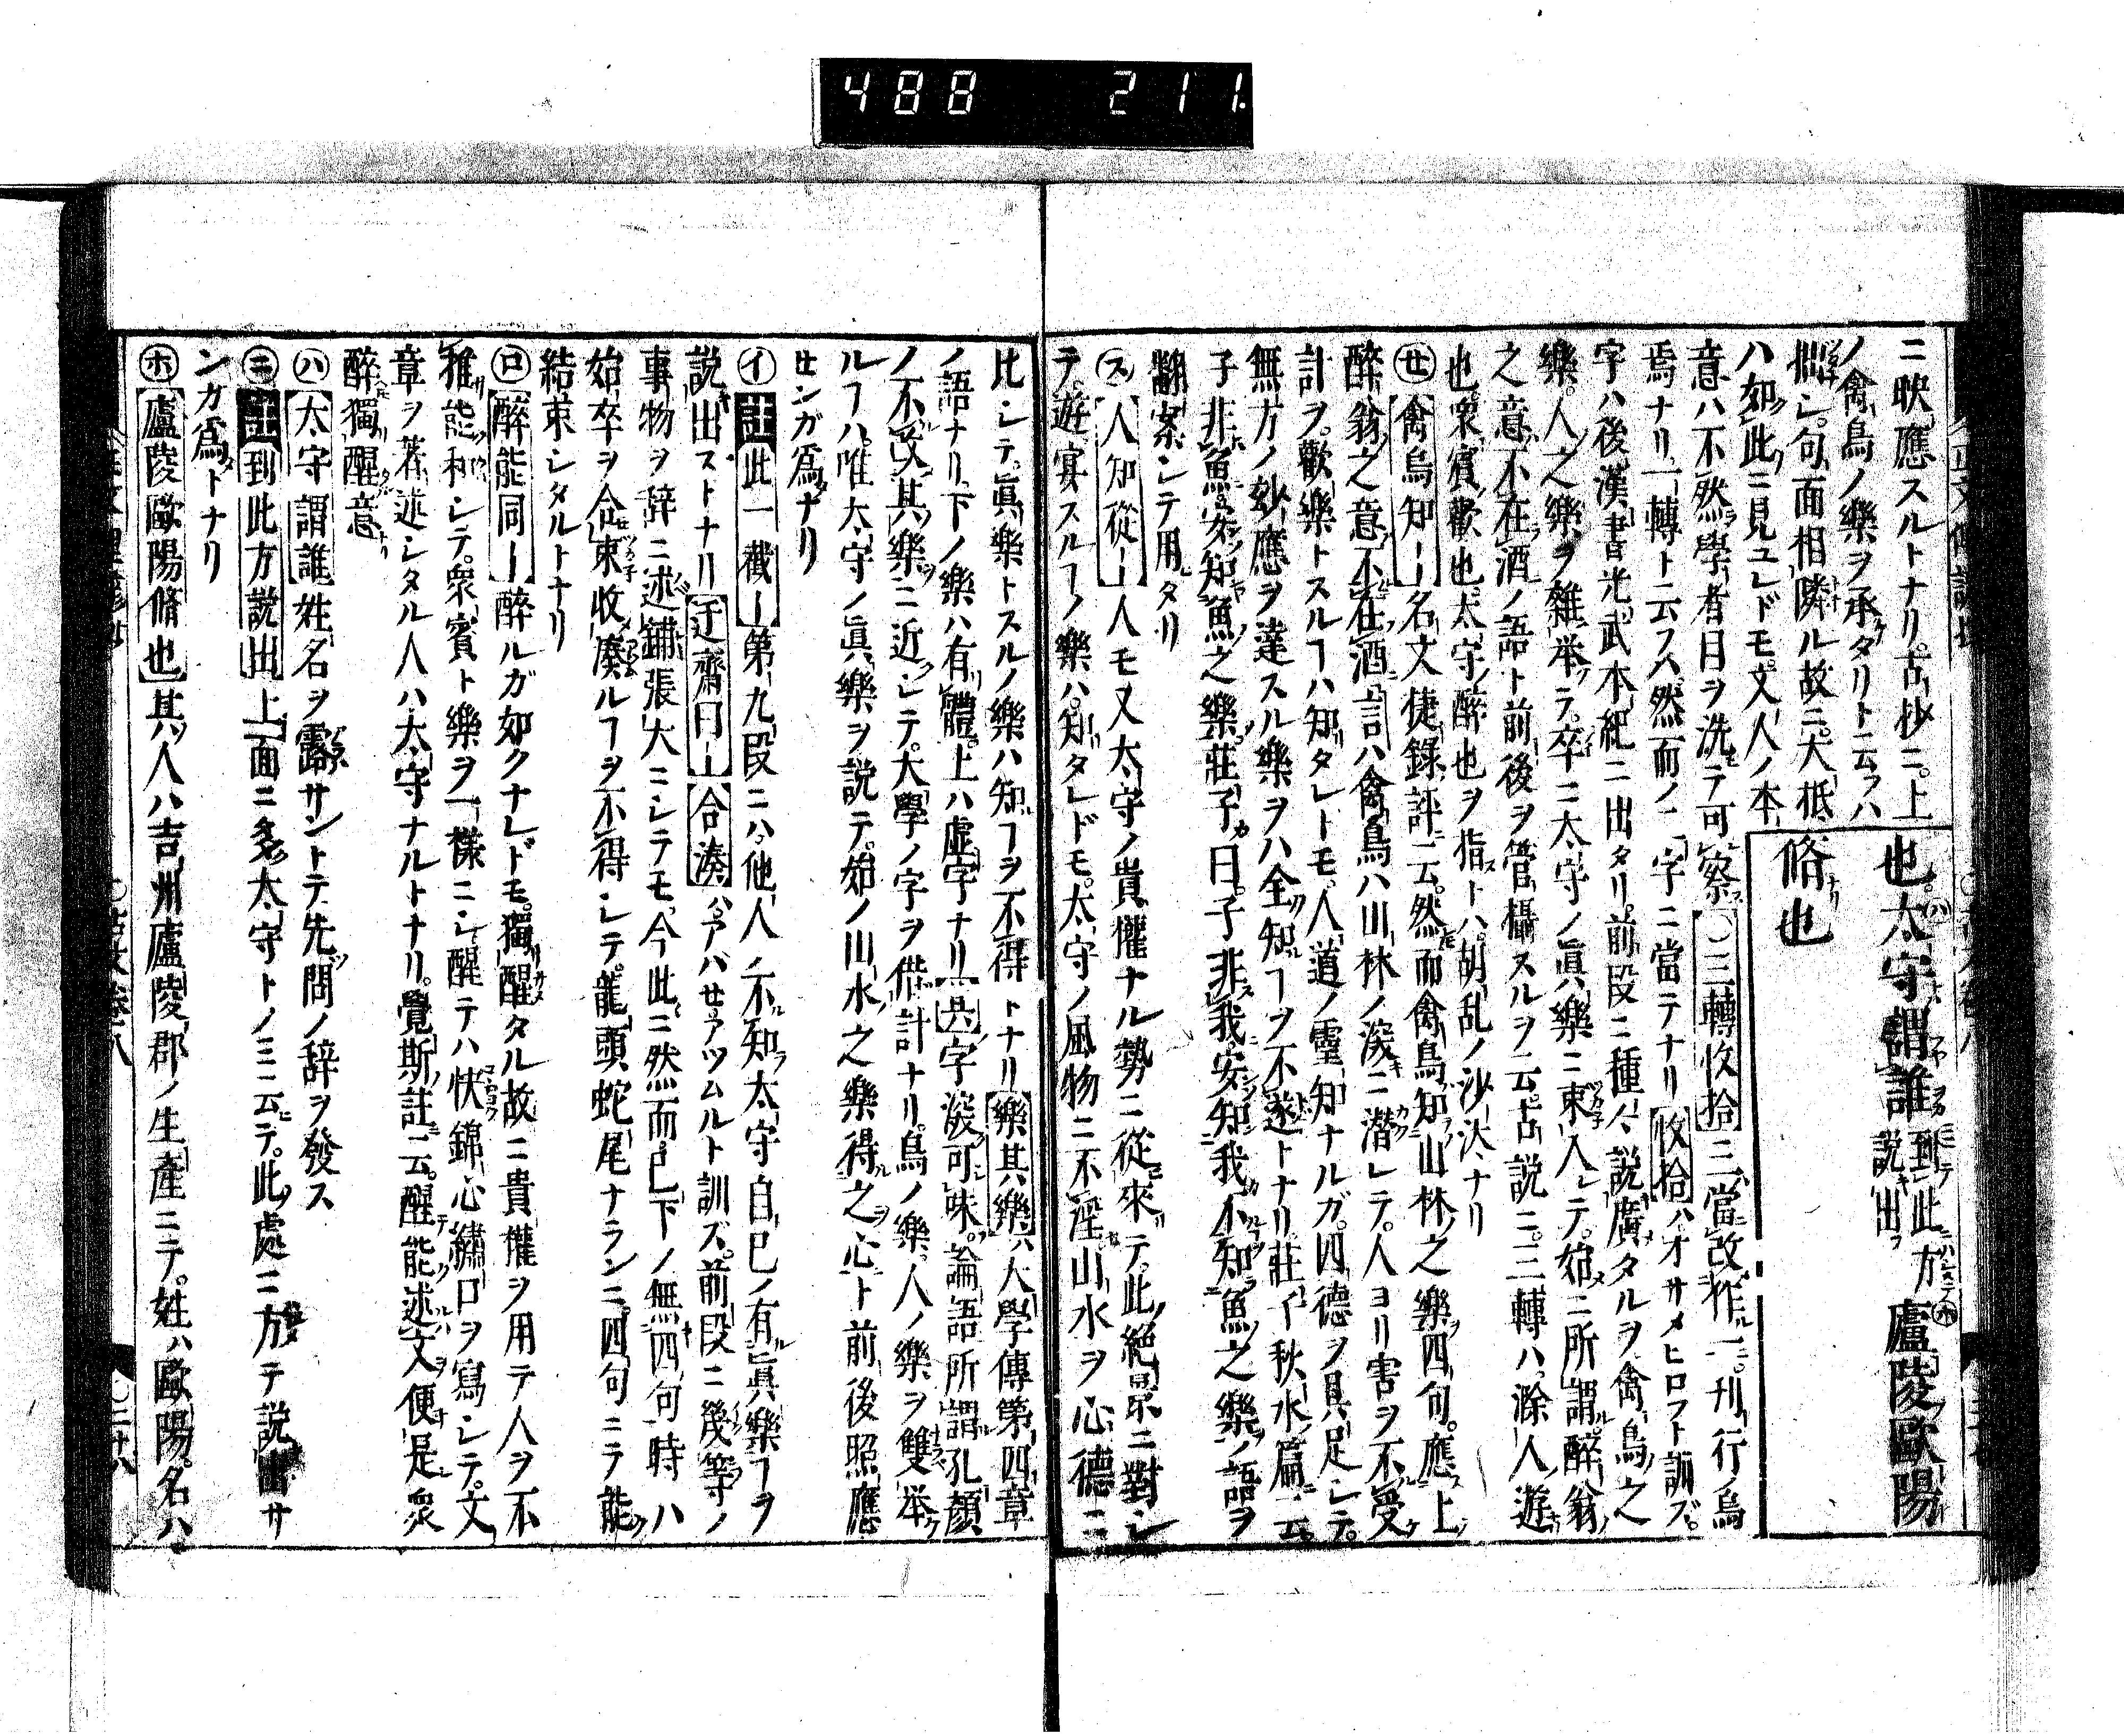 488 211.
二映應スルトナリ。古抄ニ。上
ノ禽鳥ノ樂ヲ承タリト云フハ
拙シ。句面相隣ル故ニ。大抵
ハ如此ニ見ユレドモ。文人ノ本
意ハ不然。學者目ヲ洗テ可察
也太守謂誰到此方説出廬陵歐陽
脩也
〇三轉收拾三當改作二。刊行ノ烏
焉ナリ。一轉ト云フハ。然而ノ二字ニ當テナリ收拾ハオサメヒロフト訓ズ。
字ハ後漢書光武本紀ニ出タリ。前段ニ種々説廣タルヲ禽鳥之
樂。人之樂ヲ雜挙テ。卒ニ太守ノ眞樂ニ束入レテ。始ニ所謂醉翁
之意不在酒ノ語ト前後ヲ管攝スルヲ云。古説ニ。三轉ハ滁人遊
也。衆賓歡也。太守醉也ヲ指トハ。胡乱ノ沙汰ナリ
㊂禽鳥知ー名文捷錄評云。然而禽鳥知山林之樂四句。應上
醉翁之意不在酒言ハ禽鳥ハ山林ノ深ニ潜レテ。人ヨリ害ヲ不受
計ヲ。歡樂トスルヿハ知タレトモ。人道ノ靈知ナルガ。四德ヲ具足シテ。
無方ノ妙應ヲ達スル樂ヲハ全知ルヿヲ不遂トナリ。莊子秋水篇云。
子非魚。安知魚之樂。莊子曰。子非我。安知我不知魚之樂ノ語ヲ
翻案シテ用タリ
㋜人知從ー人モ又太守ノ貴懽ナル勢ニ從來テ。此絶景ニ對シ
テ。遊宴スルヿノ樂ハ。知タレドモ。太守ノ風物ニ不淫山水ヲ心德ニ
比シテ。眞樂トスルノ樂ハ知ヿヲ不得トナリ樂其樂ハ大學傳第四章
ノ語ナリ。下ノ樂ハ有體。上ハ虚字ナリ其字深可味。論語所謂孔顔
ノ不改其樂ニ近シテ。大學ノ字ヲ借計ナリ。鳥ノ樂。人ノ樂ヲ雙挙
ルヿハ。唯太守ノ眞樂ヲ説テ。始ノ山水之樂得之心ト前後照應
サンガ爲ナリ
㋑註此一截ー第九段ニハ他人ノ不知太守自己ノ有眞樂ヿヲ
説出ストナリ迂齋曰ー合湊ハアバセアツムルト訓ズ。前段ニ幾等ノ
事物ヲ辞ニ述鋪張大ニシテモ。今此ニ然而已下ノ無四句時ハ
始卒ヲ合束收湊ルヿヲ不得シテ。龍頭蛇尾ナランニ四句ニテ能
結束シタルトナリ
㋺醉能同ー醉ルガ如クナレドモ。獨醒タル故ニ貴懽ヲ用テ人ヲ不
推能和シテ。衆賓ト樂ヲ一樣ニシ醒テハ快錦心繍口ヲ寫シテ。文
章ヲ著述シタル人ハ太守ナルトナリ。覺斯註云。醒能述文便是衆
醉獨醒意
㋩太守謂誰姓名ヲ露サントテ先問ノ辞ヲ發ス
㊁註到此方説出上面ニ多太守トノミ云テ。此處ニ方テ説出サ
ンガ爲トナリ
㋭廬陵歐陽脩也其人ハ吉州廬陵郡ノ生産ニテ。姓ハ歐陽。名ハ